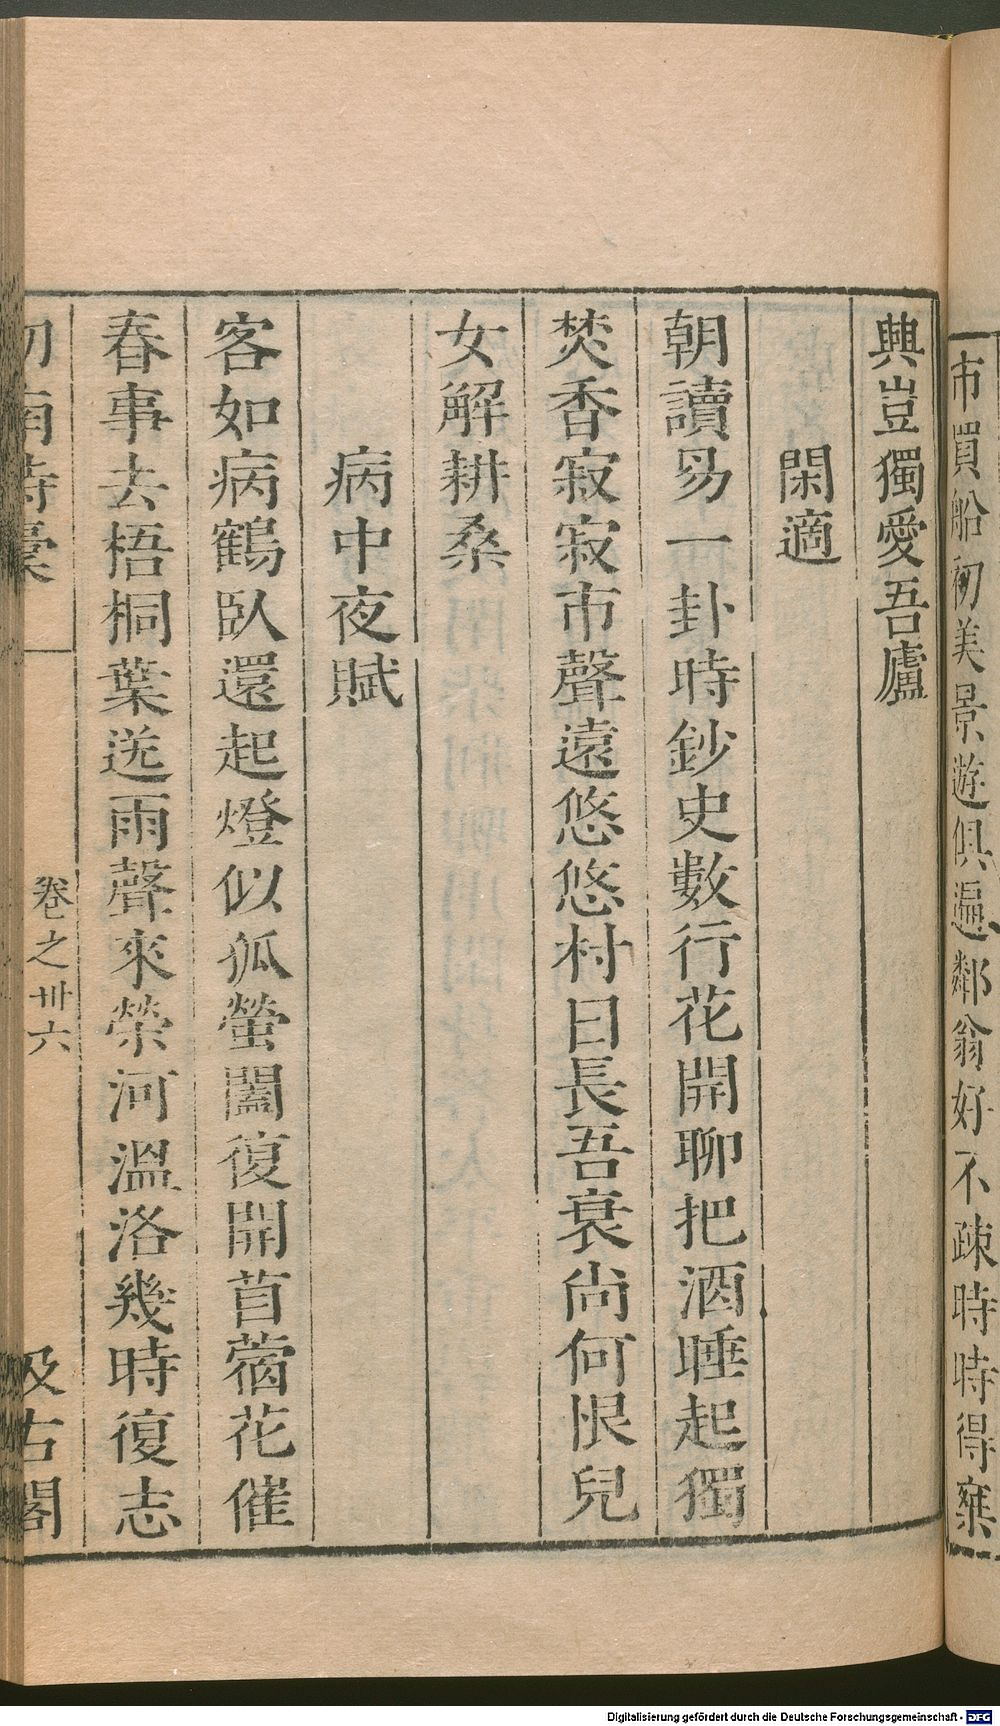 市買船初美景遊俱遍鄰翁好不疎時時得㮣
興豈獨愛吾廬
閑適
朝讀易一卦時鈔史數行花開聊把酒睡起獨
焚香寂寂市聲遠悠悠村日長吾衰尚何恨兒
女解耕桑
病中夜賦
客如病鶴臥還起燈似孤螢闔復開苜蓿花催
春事去梧桐葉送雨聲來滎河溫洛幾時復志
劒南詩稾
卷之卅六
汲古閣
Digitalisierung gefördert durch die Deutsche Forschungsgemeinschaft - DFG